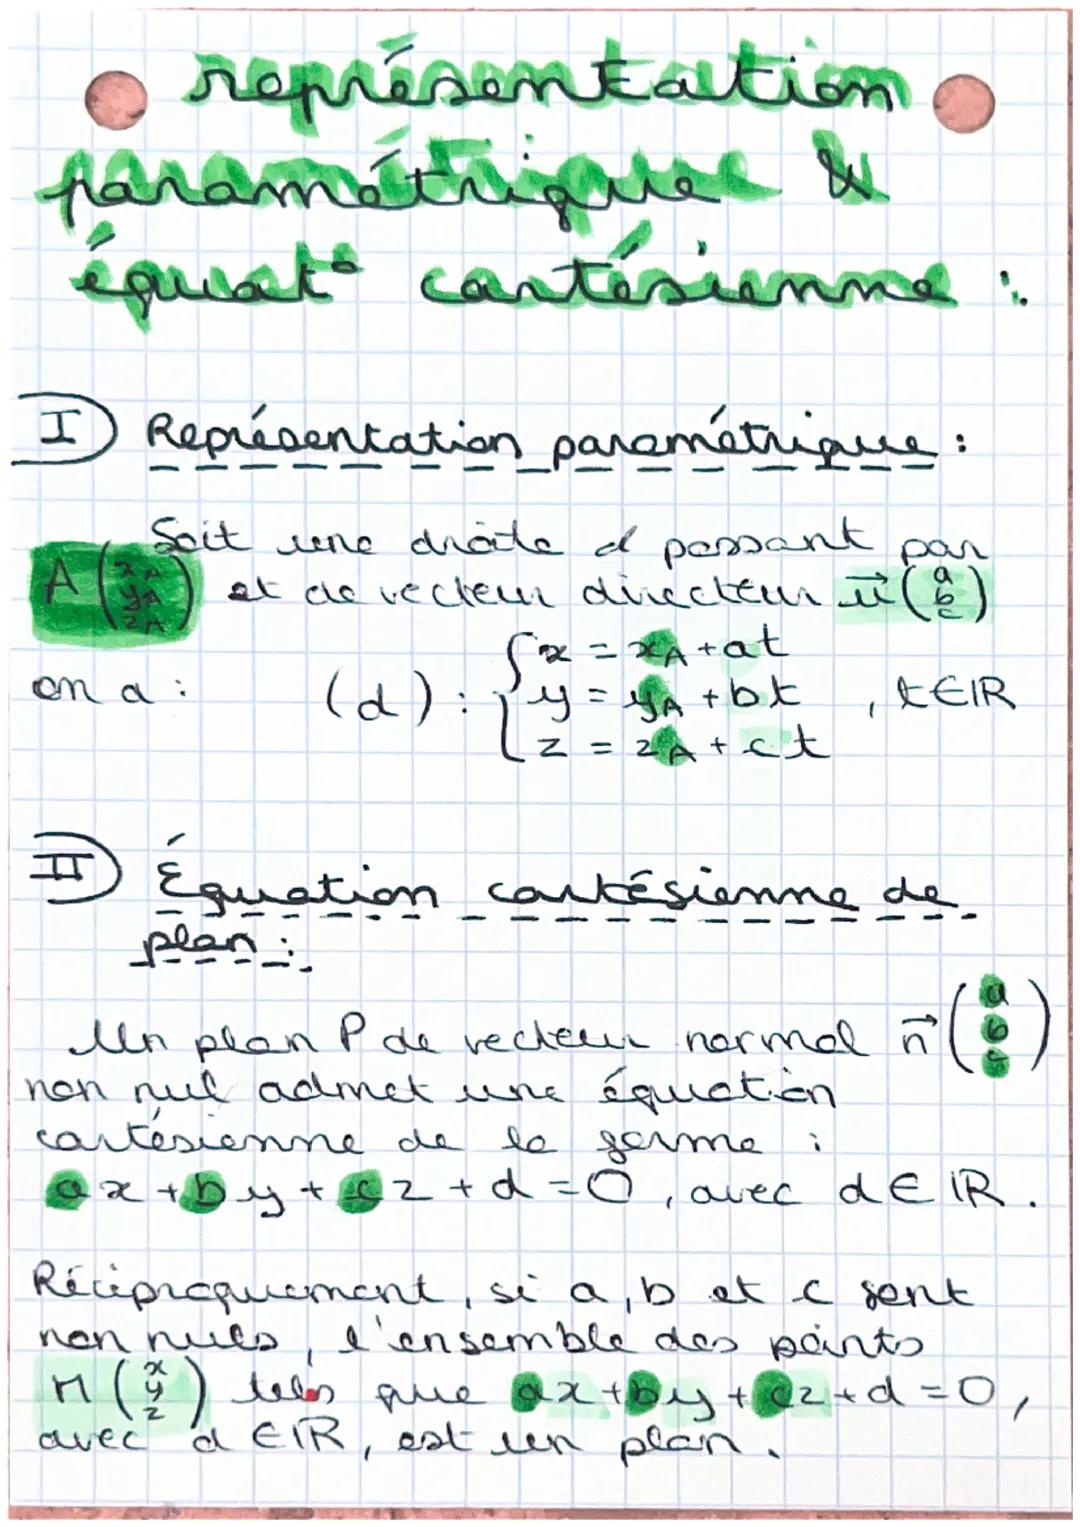 représentation
paramétrique &
équat° cartésienne :
I) Représentation paramétrique :
Soit une droite d passant par
A (xA yA zA) et de vecteur directeur u⃗ (a b c)
on a : (d) : { x = xA + at
y = yA + bt , t∈IR
z = zA + ct
II) Équation cartésienne de
plan :
Un plan P de vecteur normal n⃗ (a b c)
non nul admet une équation
cartésienne de la forme :
ax + by + cz + d = 0, avec d ∈ IR.
Réciproquement, si a, b et c sont
non nuls, l'ensemble des points
M (x y z) tels que ax + by + cz + d = 0,
avec d ∈ IR, est un plan.